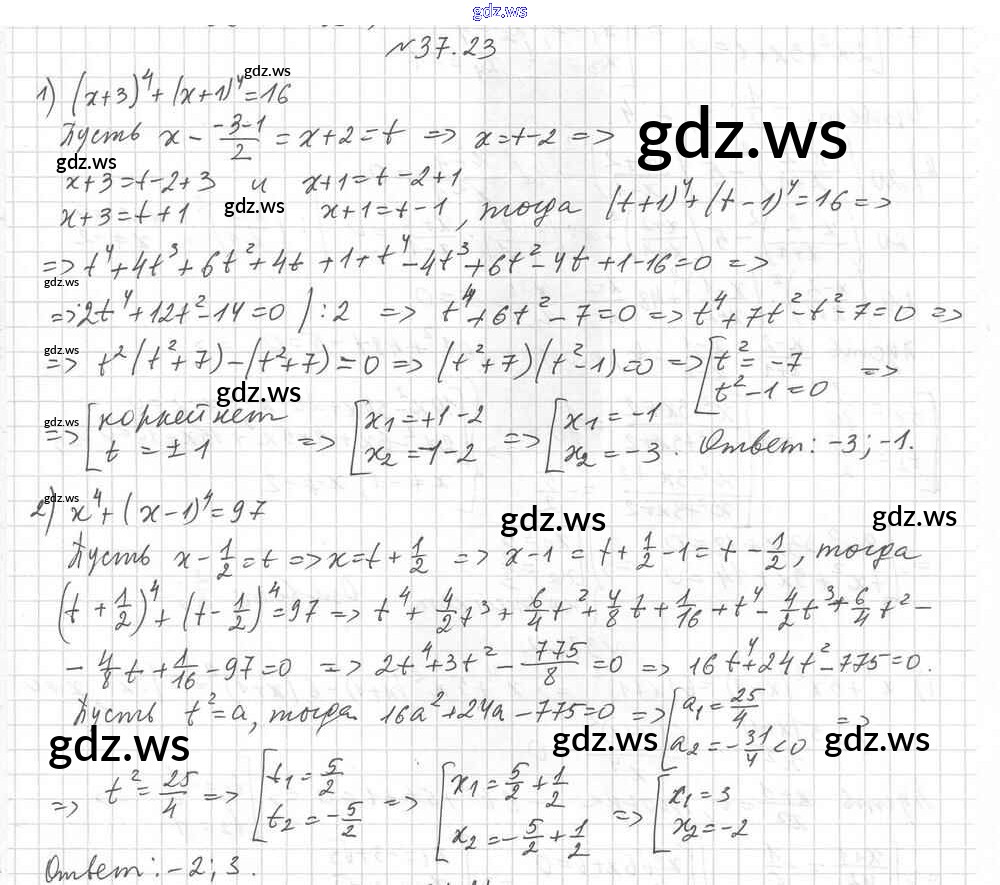 gdz.ws
№37.23
1) (x+3)⁴+(x+1)⁴=16
gdz.ws
Пусть x - (-3-1)/2 = x+2 = t => x=t-2 =>
gdz.ws
gdz.ws
x+3=t-2+3 и x+1=t-2+1
x+3=t+1 x+1=t-1, тогда (t+1)⁴+(t-1)⁴=16 =>
gdz.ws
=> t⁴+4t³+6t²+4t+1+t⁴-4t³+6t²-4t+1-16=0 =>
gdz.ws
=> 2t⁴+12t²-14=0 /:2 => t⁴+6t²-7=0 => t⁴+7t²-t²-7=0 =>
gdz.ws
=> t²(t²+7)-(t²+7)=0 => (t²+7)(t²-1)=0 => [t²=-7 t²-1=0 =>
gdz.ws
gdz.ws
=> [корней нет t=±1 => [x₁=+1-2 x₂=-1-2 => [x₁=-1 x₂=-3. Ответ: -3; -1.
gdz.ws
2) x⁴+(x-1)⁴=97
gdz.ws
gdz.ws
Пусть x-1/2=t => x=t+1/2 => x-1=t+1/2-1=t-1/2, тогда
(t+1/2)⁴+(t-1/2)⁴=97 => t⁴+4/2t³+6/4t²+4/8t+1/16+t⁴-4/2t³+6/4t²-
-4/8t+1/16-97=0 => 2t⁴+3t²-775/8=0 => 16t⁴+24t²-775=0.
Пусть t²=a, тогда 16a²+24a-775=0 => [a₁=25/4 a₂=-31/4<0 =>
gdz.ws
gdz.ws
gdz.ws
=> t²=25/4 => [t₁=5/2 t₂=-5/2 => [x₁=5/2+1/2 x₂=-5/2+1/2 => [x₁=3 x₂=-2
Ответ: -2; 3.